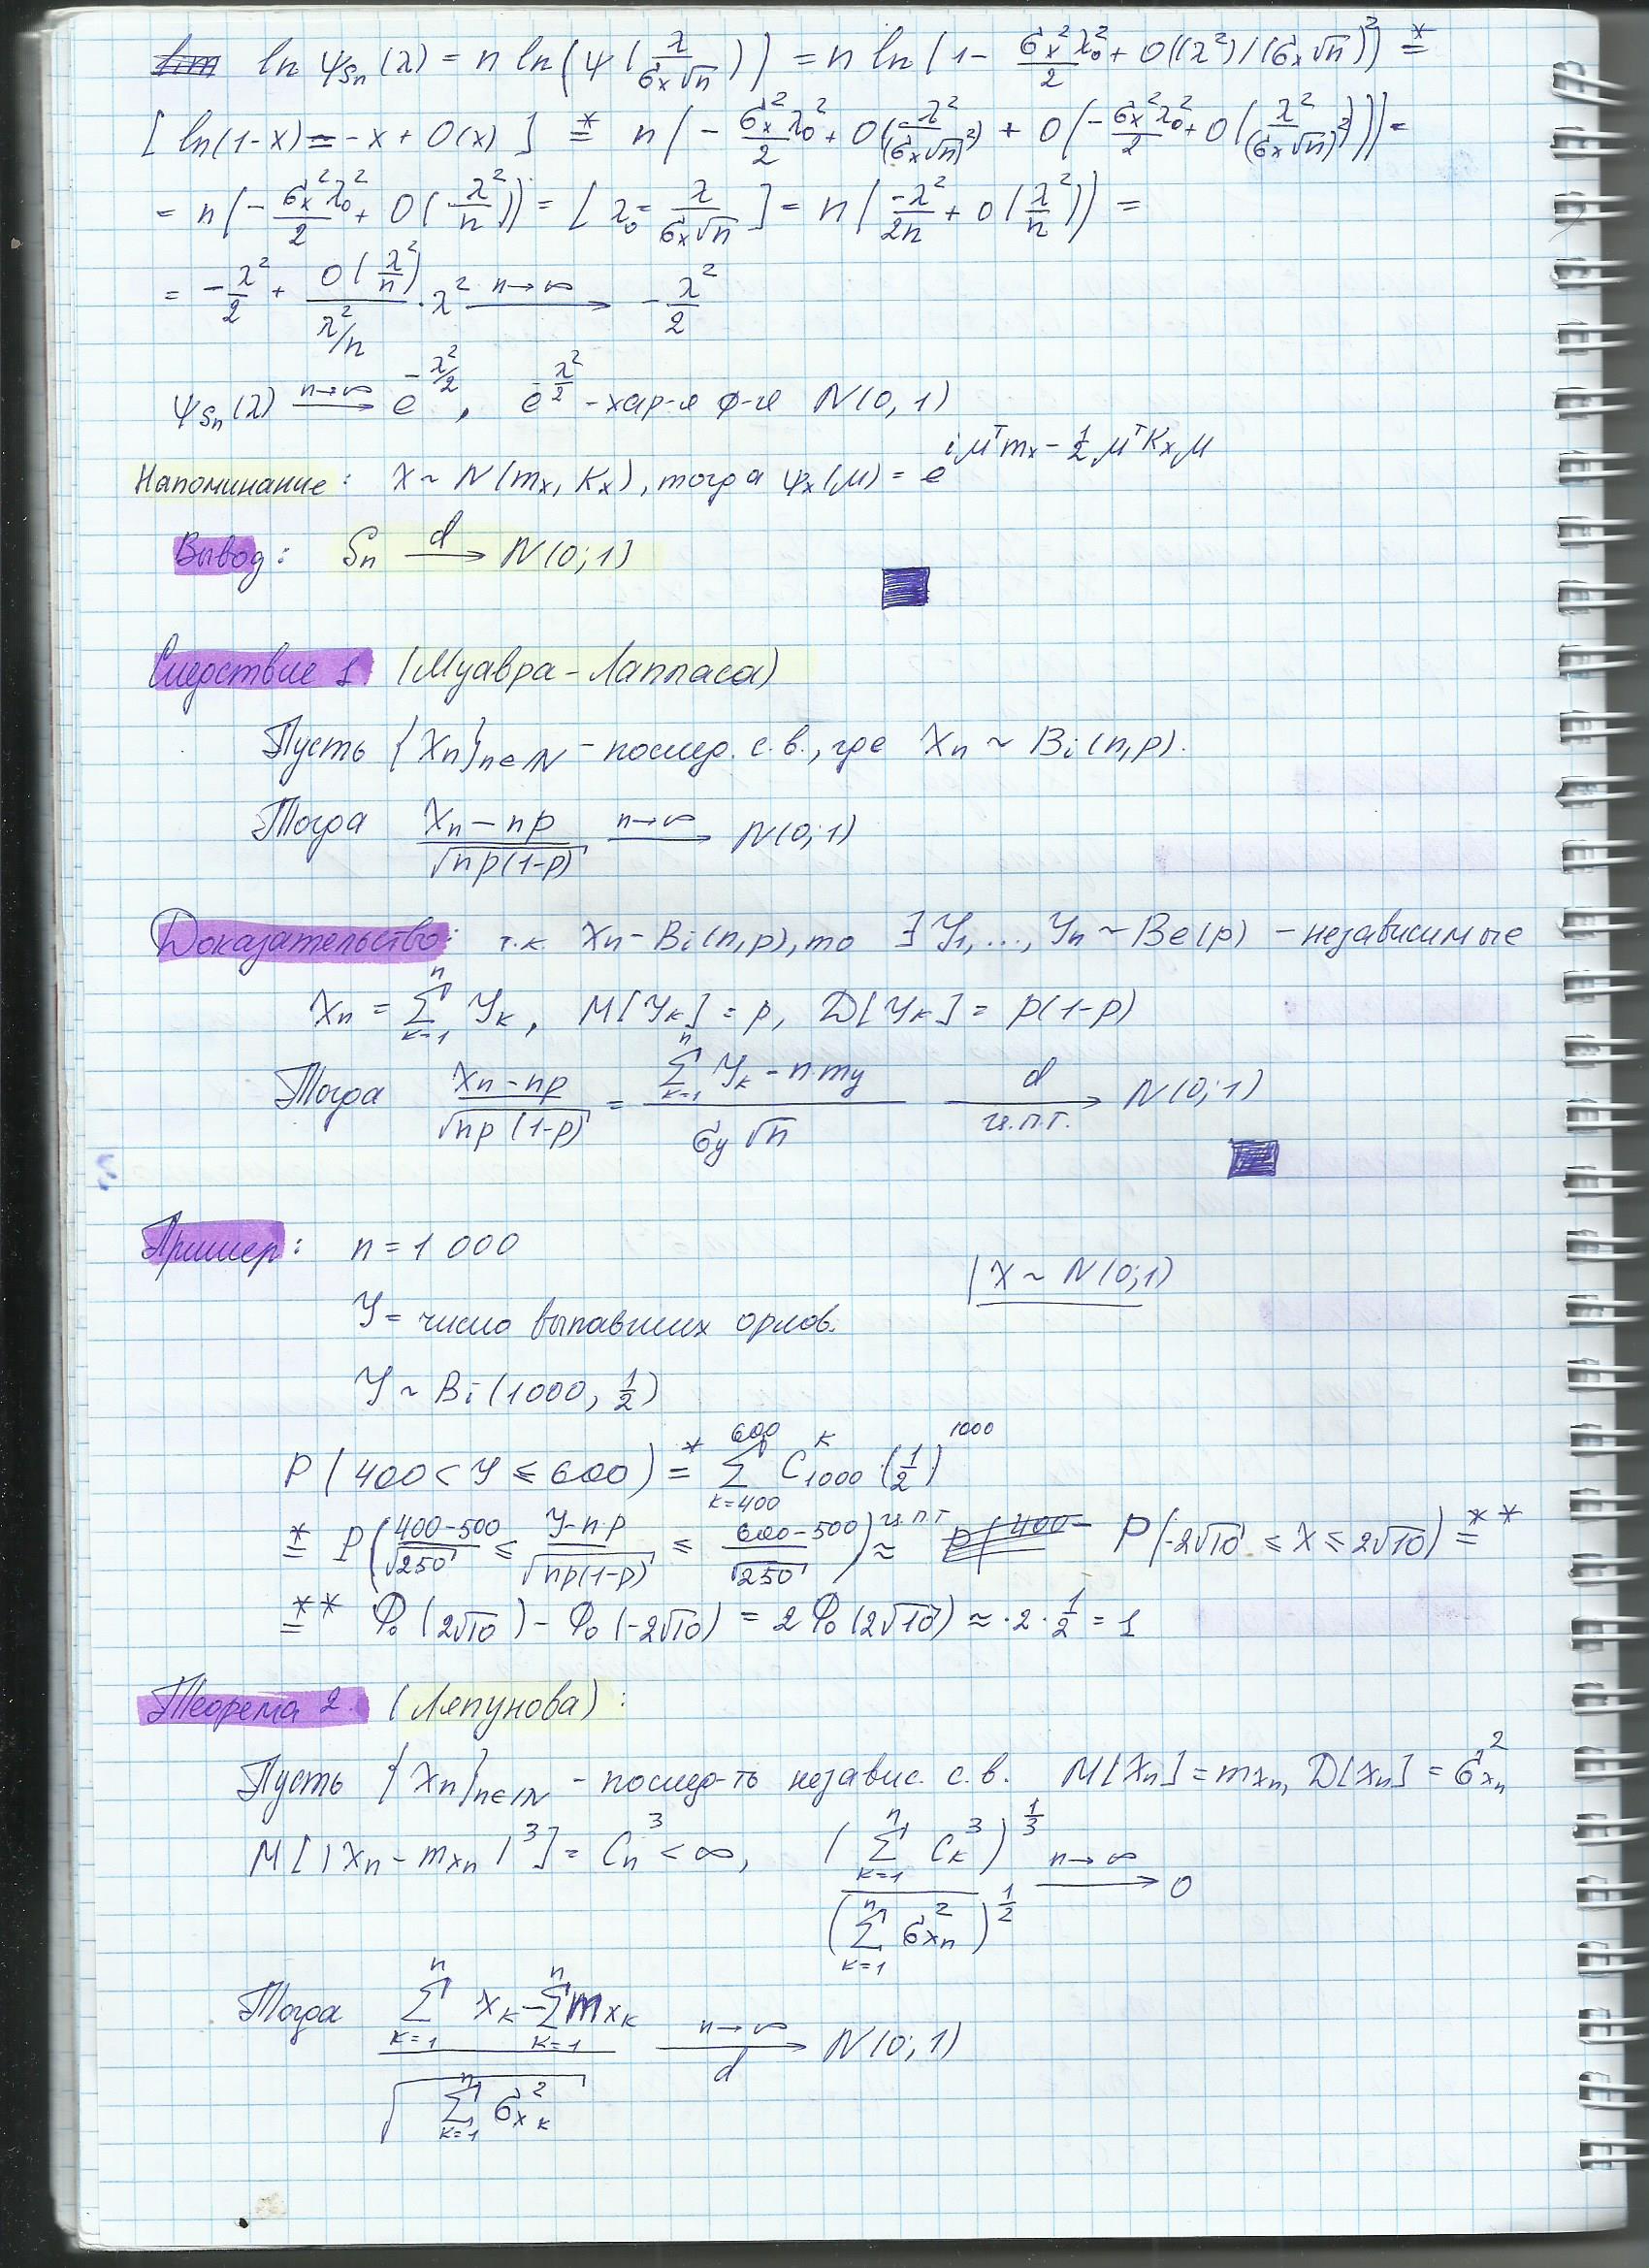 ln ψ_Sn(λ) = n ln(ψ(λ/(σ_x√n))) = n ln(1 - σ_x²λ_0²/2 + o((λ²)/(σ_x√n)²)) =*
[ln(1-x) = -x + o(x)] =* n(-σ_x²λ_0²/2 + o(λ²/(σ_x√n)²) + o(-σ_x²λ_0²/2 + o(λ²/(σ_x√n)²))) =
= n(-σ_x²λ_0²/2 + o(λ²/n)) = [λ_0 = λ/(σ_x√n)] = n(-λ²/2n + o(λ²/n)) =
= -λ²/2 + o(λ²/n)/(λ²/n) · λ² —n→∞→ -λ²/2
ψ_Sn(λ) —n→∞→ e^(-λ²/2), e^(-λ²/2) - хар-я ф-я N(0,1)
Напоминание: X ~ N(m_x, K_x), тогда ψ_x(μ) = e^(iμ^T m_x - ½ μ^T K_x μ)
Вывод: S_n —d→ N(0;1)
Следствие 1. (Муавра-Лапласа)
Пусть {X_n}_n∈N - послед. с.в., где X_n ~ Bi(n,p).
Тогда (X_n - np)/√(np(1-p)) —n→∞→ N(0;1)
Доказательство: т.к. X_n ~ Bi(n,p), то ∃ Y_1, ..., Y_n ~ Be(p) - независимые
X_n = Σ_{k=1}^n Y_k, M[Y_k] = p, D[Y_k] = p(1-p)
Тогда (X_n - np)/√(np(1-p)) = (Σ_{k=1}^n Y_k - n·m_y)/(σ_y√n) —d, ц.п.т.→ N(0;1)
Пример: n = 1 000
| X ~ N(0;1)
Y = число выпавших орлов.
Y ~ Bi(1000, ½)
P(400 < Y ≤ 600) =* Σ_{k=400}^{600} C_1000^k · (½)^1000
=* P((400-500)/√250 ≤ (Y-n·p)/√(np(1-p)) ≤ (600-500)/√250) ≈ ц.п.т P(-2√10 ≤ X ≤ 2√10) =**
=** Φ_0(2√10) - Φ_0(-2√10) = 2Φ_0(2√10) ≈ ·2·½ = 1
Теорема 2. (Ляпунова):
Пусть {X_n}_n∈N - послед-ть независ. с.в. M[X_n] = m_xn, D[X_n] = σ²_xn
M[|X_n - m_xn|³] = C_n³ < ∞, (Σ_{k=1}^n C_k³)^⅓ / (Σ_{k=1}^n σ²_xn)^½ —n→∞→ 0
Тогда (Σ_{k=1}^n X_k - Σ_{k=1}^n m_xk)/√(Σ_{k=1}^n σ²_xk) —n→∞, d→ N(0;1)